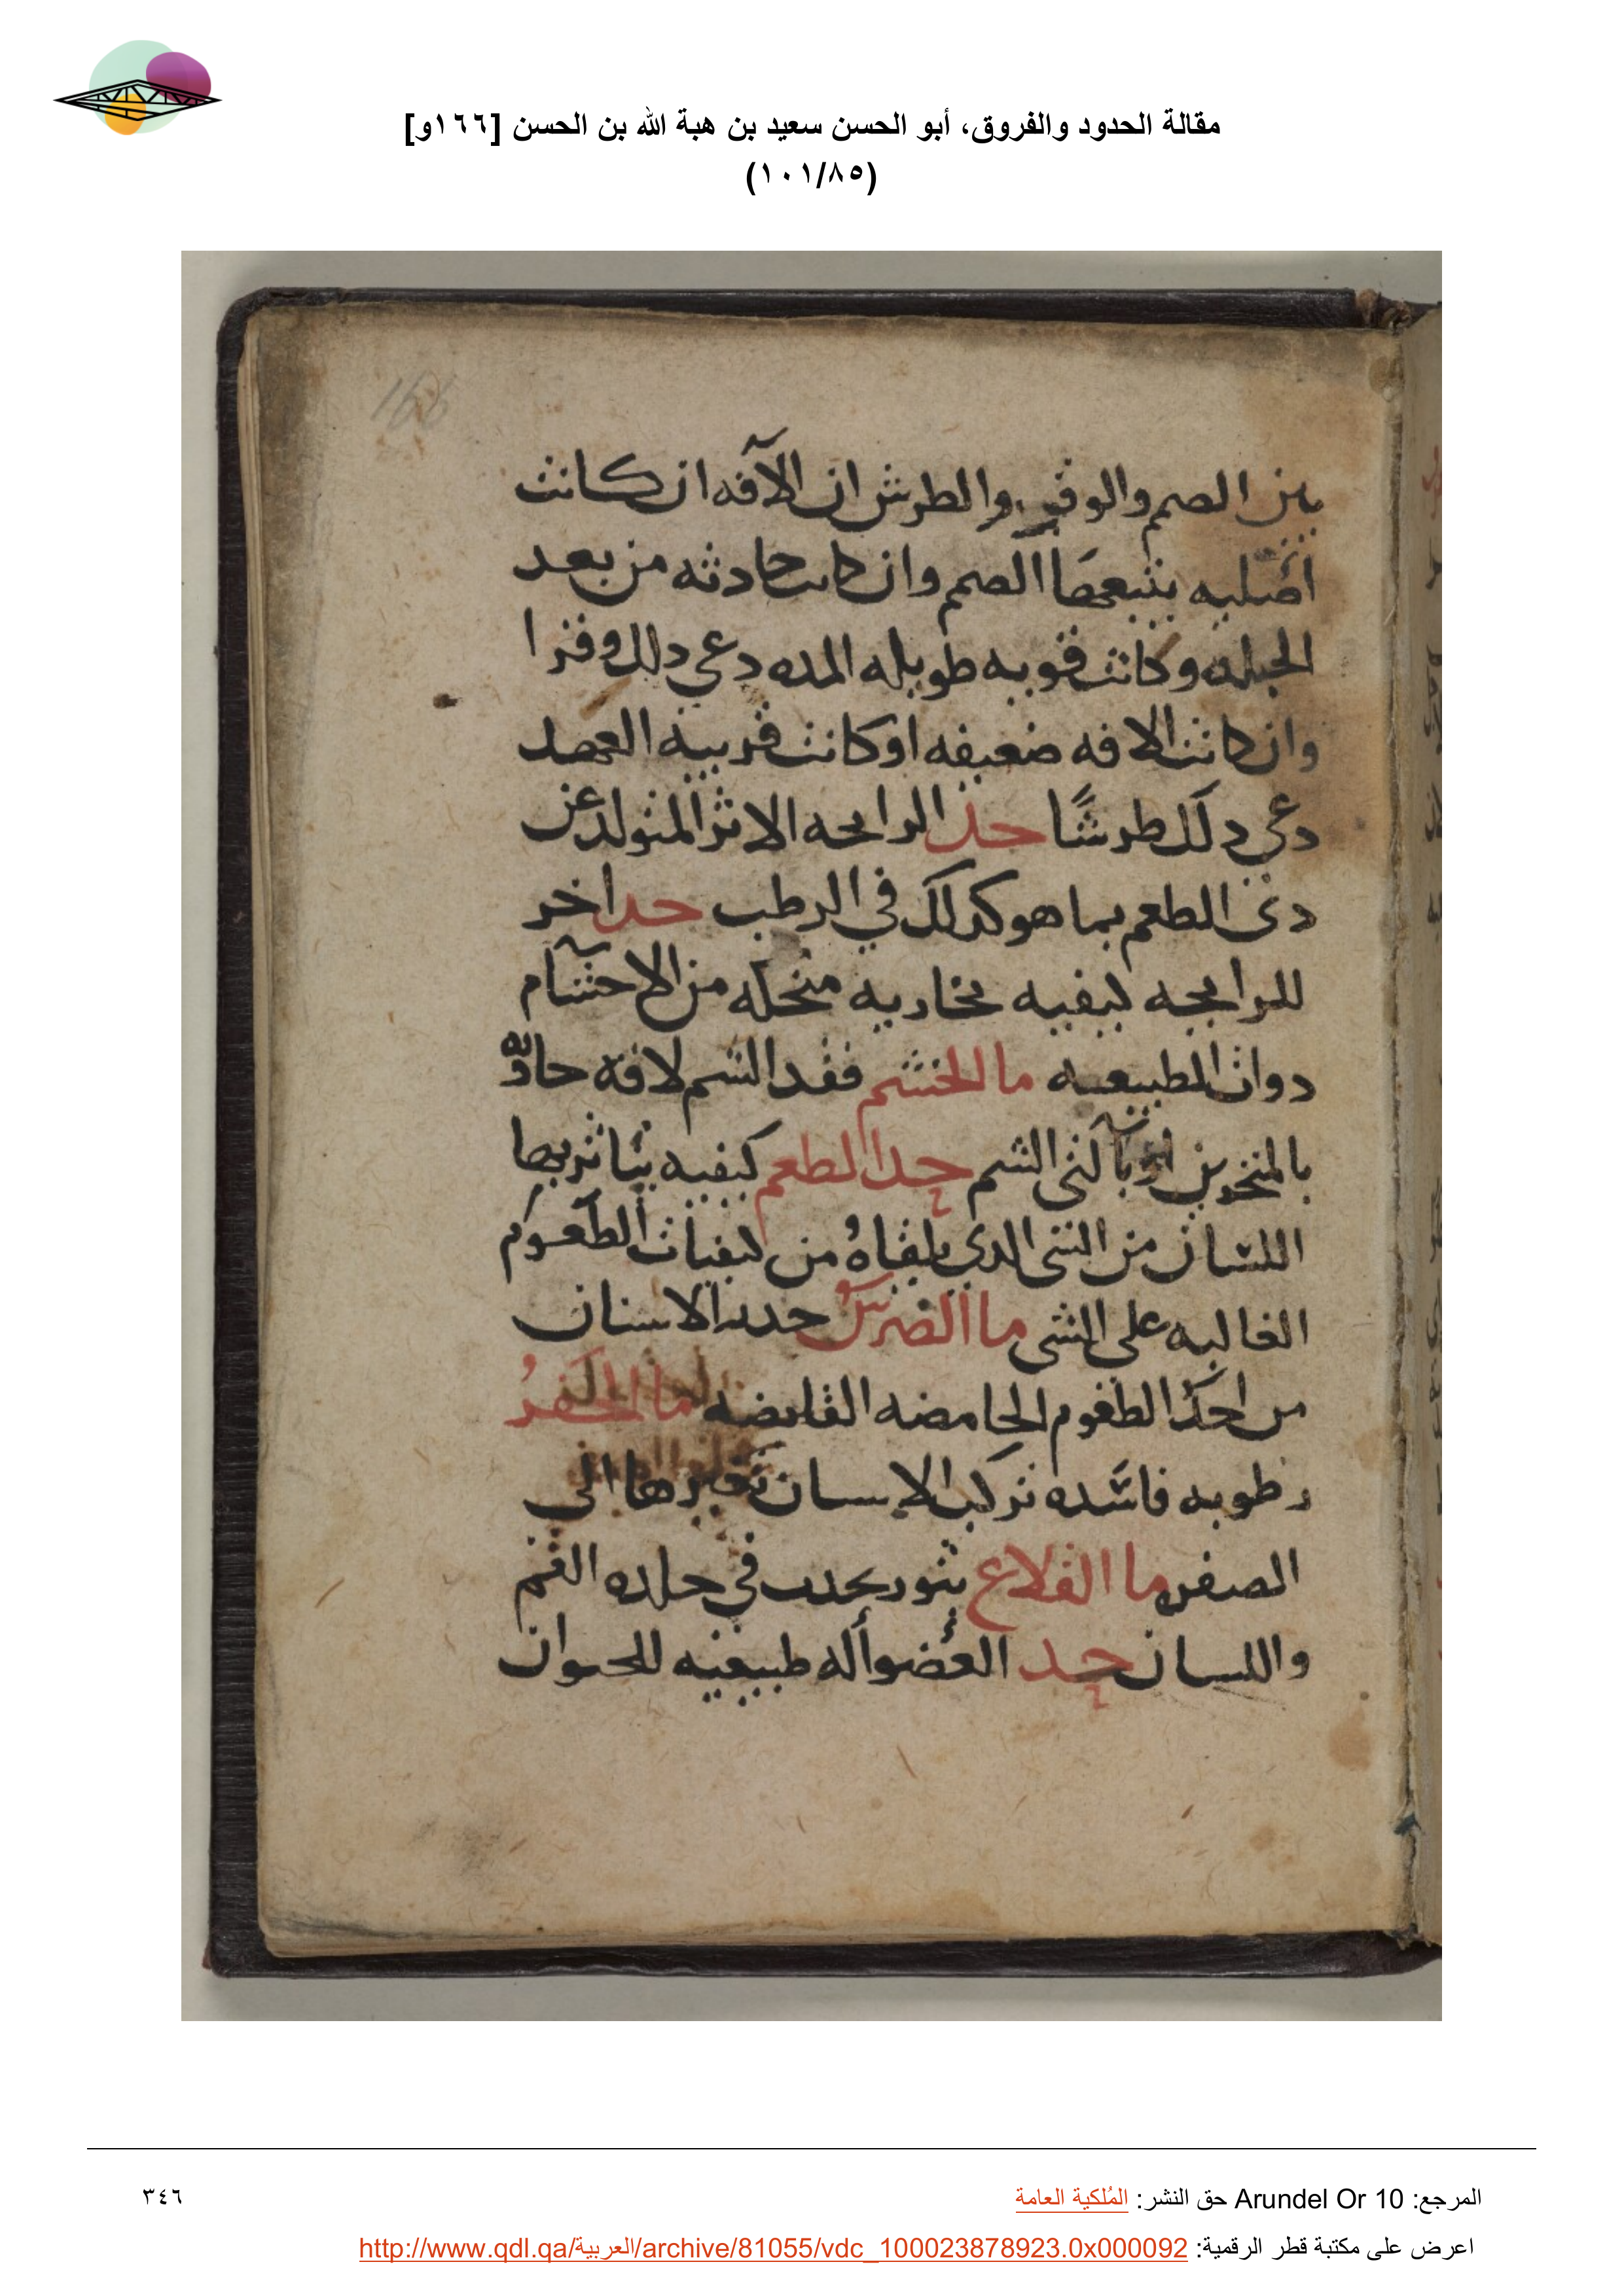 مقالة الحدود والفروق، أبو الحسن سعيد بن هبة الله بن الحسن [١٦٦و]
(١٠١/٨٥)
166
بين الصمم والوقر والطرش ان الآفه ان كانت
اصليه يتبعها الصمم وان كانت حادثه من بعد
الجبله وكانت قويه طويله المده دعي دلك وقرا
وان كانت الافه ضعيفه او كانت قريبه العهد
دعي دلك طرشًا حد الرايحه الاثر المتولد عن
دى الطعم بما هو كدلك في الرطب حد اخر
للرايحه كيفيه بخاريه منحله من الاجسام
دوات الطبيعيه ما الخشم فقد الشم لافه حادثه
بالمنخرين او بآلتى الشم حد الطعم كيفيه يتاثر بها
اللسان من الشى الدي يلقاهُ من كيفيات الطعوم
الغالبه على الشى ما الضرس خدر الاسنان
من احد الطعوم الحامضه القابضه ما الحفرُ
رطوبه فاسده تركب الاسنان تغيرها الى
الصفره ما القلاع بثور يحدث في جلده الفم
واللسان حد العضو أله طبيعيه للحيوان
المرجع: Arundel Or 10 حق النشر: المُلكية العامة
٣٤٦
اعرض على مكتبة قطر الرقمية: http://www.qdl.qa/العربية/archive/81055/vdc_100023878923.0x000092